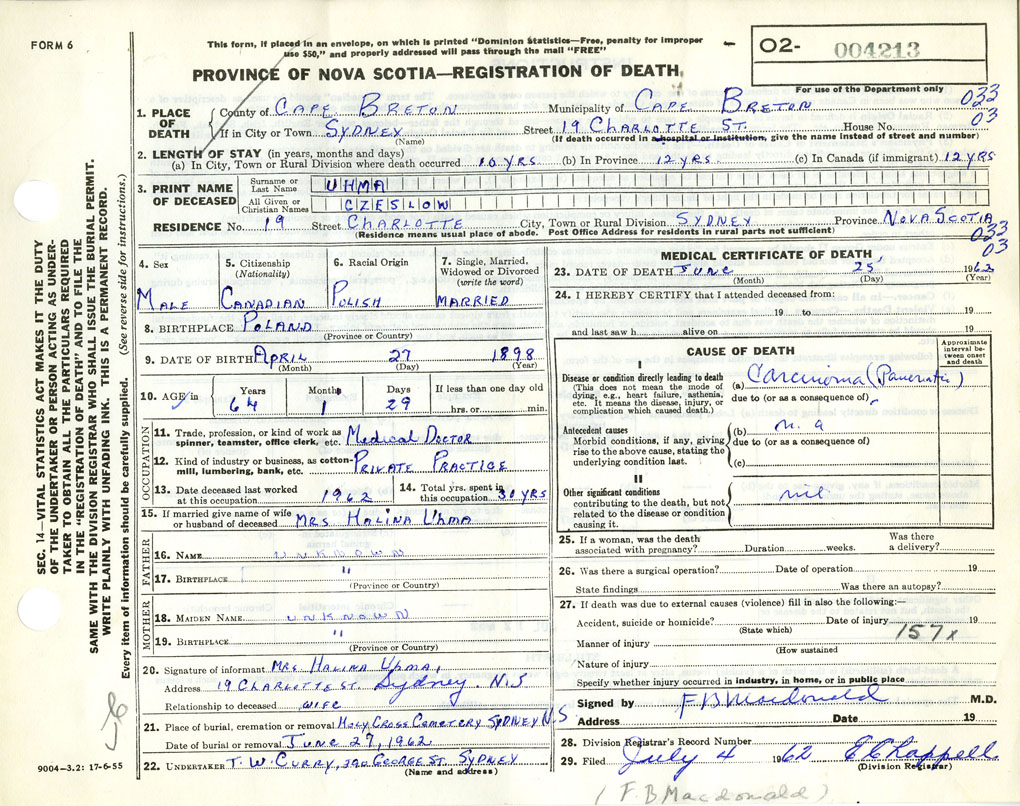 FORM 6
This form, if placed in an envelope, on which is printed "Dominion Statistics—Free, penalty for improper
use $50," and properly addressed will pass through the mail "FREE"
02- 004213
PROVINCE OF NOVA SCOTIA—REGISTRATION OF DEATH
For use of the Department only
033
03
1. PLACE OF DEATH County of CAPE BRETON Municipality of CAPE BRETON
If in City or Town SYDNEY Street 19 CHARLOTTE ST. House No.
(Name) (If death occurred in a hospital or institution, give the name instead of street and number)
2. LENGTH OF STAY (in years, months and days)
(a) In City, Town or Rural Division where death occurred 10 YRS (b) In Province 12 YRS. (c) In Canada (if immigrant) 12 YRS
3. PRINT NAME OF DECEASED
Surname or Last Name UHMA
All Given or Christian Names CZESLOW
RESIDENCE No. 19 Street CHARLOTTE City, Town or Rural Division SYDNEY Province NOVA SCOTIA
(Residence means usual place of abode. Post Office Address for residents in rural parts not sufficient)
033
03
4. Sex 5. Citizenship (Nationality) 6. Racial Origin 7. Single, Married, Widowed or Divorced (write the word)
MALE CANADIAN POLISH MARRIED
8. BIRTHPLACE POLAND
(Province or Country)
9. DATE OF BIRTH APRIL 27 1898
(Month) (Day) (Year)
10. AGE in Years Months Days If less than one day old
64 1 29 hrs. or min.
OCCUPATION
11. Trade, profession, or kind of work as spinner, teamster, office clerk, etc. MEDICAL DOCTOR
12. Kind of industry or business, as cotton-mill, lumbering, bank, etc. PRIVATE PRACTICE
13. Date deceased last worked at this occupation 1962 14. Total yrs. spent in this occupation 30 YRS
15. If married give name of wife or husband of deceased MRS HALINA UHMA
FATHER
16. NAME UNKNOWN
17. BIRTHPLACE "
(Province or Country)
MOTHER
18. MAIDEN NAME UNKNOWN
19. BIRTHPLACE "
(Province or Country)
20. Signature of informant MRS HALINA UHMA,
Address 19 CHARLOTTE ST. Sydney. N.S
Relationship to deceased WIFE
21. Place of burial, cremation or removal HOLY CROSS CEMETERY SYDNEY N.S
Date of burial or removal JUNE 27, 1962
22. UNDERTAKER T. W. CURRY, 390 GEORGE ST. SYDNEY
(Name and address)
MEDICAL CERTIFICATE OF DEATH
23. DATE OF DEATH JUNE 25 1962
(Month) (Day) (Year)
24. I HEREBY CERTIFY that I attended deceased from:
19 to 19
and last saw h alive on 19
CAUSE OF DEATH
Approximate interval between onset and death
I
Disease or condition directly leading to death
(This does not mean the mode of dying, e.g., heart failure, asthenia, etc. It means the disease, injury, or complication which caused death.)
(a) Carcinoma (Pancreatic)
due to (or as a consequence of)
Antecedent causes
Morbid conditions, if any, giving rise to the above cause, stating the underlying condition last.
(b) n. a
due to (or as a consequence of)
(c)
II
Other significant conditions
contributing to the death, but not related to the disease or condition causing it.
nil
25. If a woman, was the death associated with pregnancy? Duration weeks. Was there a delivery?
26. Was there a surgical operation? Date of operation 19
State findings Was there an autopsy?
27. If death was due to external causes (violence) fill in also the following:—
Accident, suicide or homicide? Date of injury 19
(State which) 157x
Manner of injury
(How sustained
Nature of injury
Specify whether injury occurred in industry, in home, or in public place
Signed by F B Macdonald M.D.
Address Date 19
28. Division Registrar's Record Number
29. Filed July 4 1962 E C Rappell
(Division Registrar)
(F. B. Macdonald)
SEC. 14—VITAL STATISTICS ACT MAKES IT THE DUTY
OF THE UNDERTAKER OR PERSON ACTING AS UNDER-
TAKER TO OBTAIN ALL THE PARTICULARS REQUIRED
IN THE "REGISTRATION OF DEATH" AND TO FILE THE
SAME WITH THE DIVISION REGISTRAR WHO SHALL ISSUE THE BURIAL PERMIT.
WRITE PLAINLY WITH UNFADING INK. THIS IS A PERMANENT RECORD.
Every item of information should be carefully supplied. (See reverse side for instructions.)
9004-3.2: 17-6-55